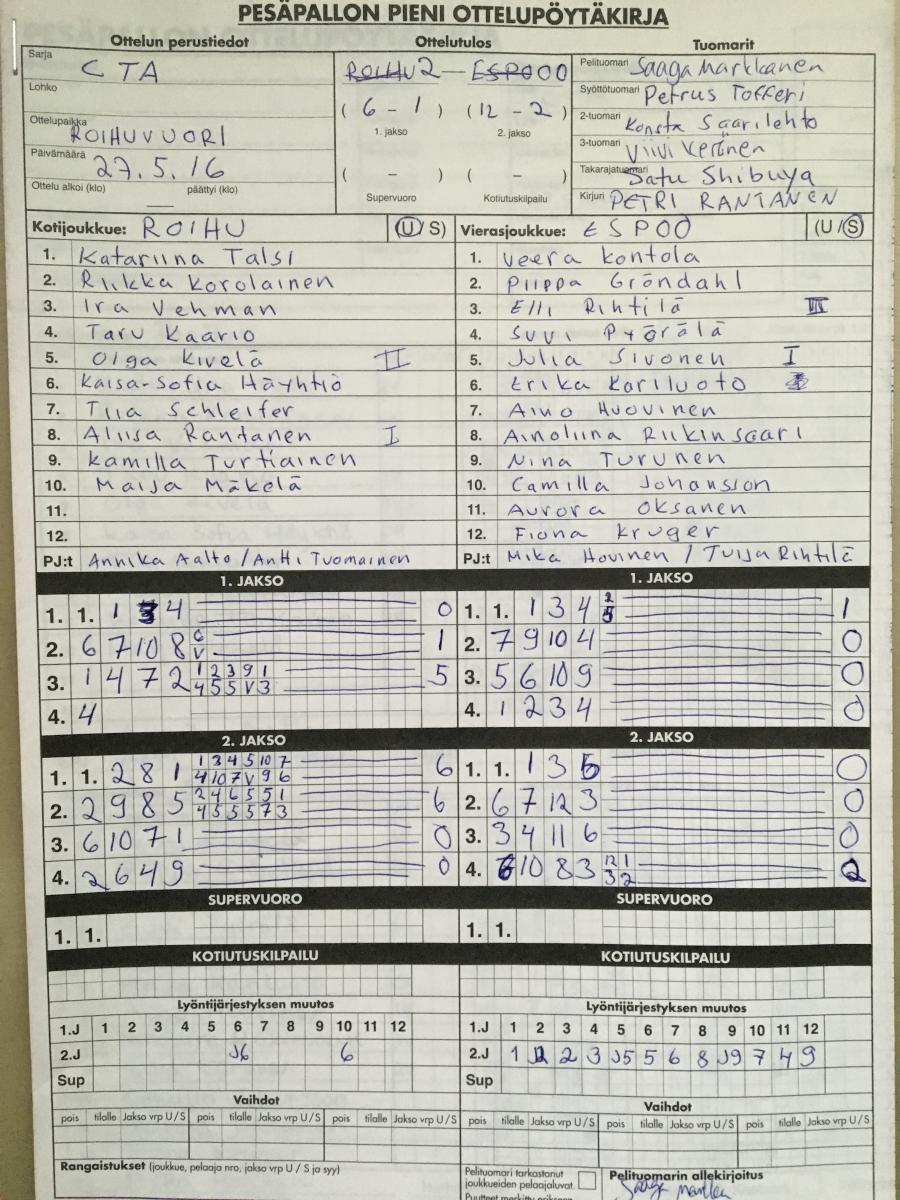 PESÄPALLON PIENI OTTELUPÖYTÄKIRJA
Ottelun perustiedot Ottelutulos Tuomarit
Sarja CTA
ROIHU 2 — ESPOO
Pelituomari Saaga Markkanen
Lohko
Syöttötuomari Petrus Tofferi
( 6 - 1 ) (12 - 2)
1. jakso 2. jakso
2-tuomari Konsta Saarilehto
Ottelupaikka ROIHUVUORI
3-tuomari Viivi Keränen
Päivämäärä 27.5.16
( - ) ( - )
Takarajatuomari Satu Shibuya
Ottelu alkoi (klo) päättyi (klo)
Supervuoro Kotiutuskilpailu
Kirjuri PETRI RANTANEN
Kotijoukkue: ROIHU (U/S) Vierasjoukkue: ESPOO (U/S)
1. Katariina Talsi 1. Veera Kontola
2. Riikka Korolainen 2. Piippa Gröndahl
3. Ira Vehman 3. Elli Rihtilä
4. Taru Kaario 4. Suvi Pyörälä
5. Olga Kivelä II 5. Julia Sivonen I
6. Kaisa-Sofia Häyhtiö 6. Erika Kariluoto
7. Tiia Schleifer 7. Aino Huovinen
8. Aliisa Rantanen I 8. Ainoliina Riikinsaari
9. Kamilla Turtiainen 9. Nina Turunen
10. Maija Mäkelä 10. Camilla Johansson
11. 11. Aurora Oksanen
12. 12. Fiona Kruger
PJ:t Annika Aalto / Antti Tuomainen PJ:t Mika Hovinen / Tuija Rihtilä
1. JAKSO 1. JAKSO
1. 1. 1 3 4 0 1. 1. 1 3 4 2 5 1
2. 6 7 10 8 C V 1 2. 7 9 10 4 0
3. 1 4 7 2 1 2 3 9 1 5 3. 5 6 10 9 0
4 5 5 V 3
4. 4 4. 1 2 3 4 0
2. JAKSO 2. JAKSO
1. 1. 2 8 1 1 3 4 5 10 7 6 1. 1. 1 3 5 0
4 10 7 V 9 6
2. 2 9 8 5 2 4 6 5 5 1 6 2. 6 7 12 3 0
4 5 5 5 7 3
3. 6 10 7 1 0 3. 3 4 11 6 0
4. 2 6 4 9 0 4. 6 10 8 3 12 1 2
3 2
SUPERVUORO SUPERVUORO
1. 1. 1. 1.
KOTIUTUSKILPAILU KOTIUTUSKILPAILU
Lyöntijärjestyksen muutos Lyöntijärjestyksen muutos
1.J 1 2 3 4 5 6 7 8 9 10 11 12 1.J 1 2 3 4 5 6 7 8 9 10 11 12
2.J J6 6 2.J 1 2 3 J5 5 6 8 J9 7 4 9
Sup Sup
Vaihdot Vaihdot
pois tilalle Jakso vrp U/S pois tilalle Jakso vrp U/S pois tilalle Jakso vrp U/S pois tilalle Jakso vrp U/S pois tilalle Jakso vrp U/S pois tilalle Jakso vrp U/S
Rangaistukset (joukkue, pelaaja nro, jakso vrp U / S ja syy)
Pelituomari tarkastanut
joukkueiden pelaajaluvat.
Pelituomarin allekirjoitus